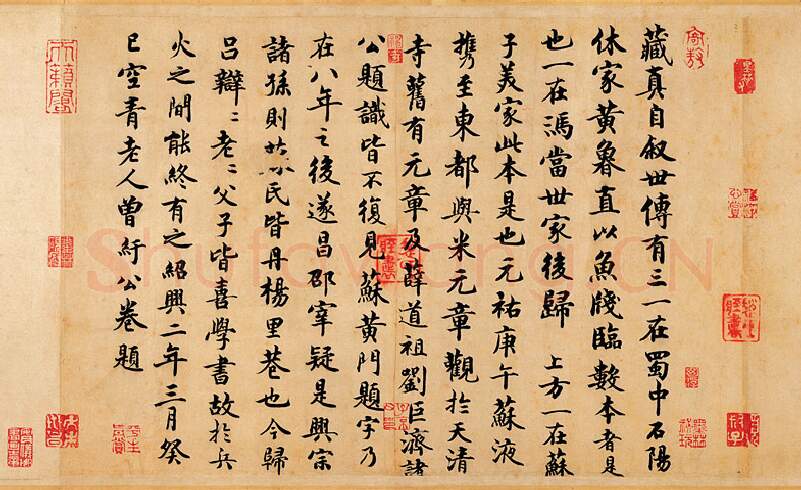 藏真自敘世傳有三一在蜀中石陽
休家黃魯直以魚牋臨數本者是
也一在馮當世家後歸 上方一在蘇
子美家此本是也元祐庚午蘇液
攜至東都與米元章觀於天清
寺舊有元章及薛道祖劉巨濟諸
公題識皆不復見蘇黃門題字乃
在八年之後遂昌邵宰疑是興宗
諸孫則蘇氏皆丹楊里巷也今歸
呂辯〻老〻父子皆喜學書故於兵
火之間能終有之紹興二年三月癸
巳空青老人曾紆公卷題
Shufawang.CN